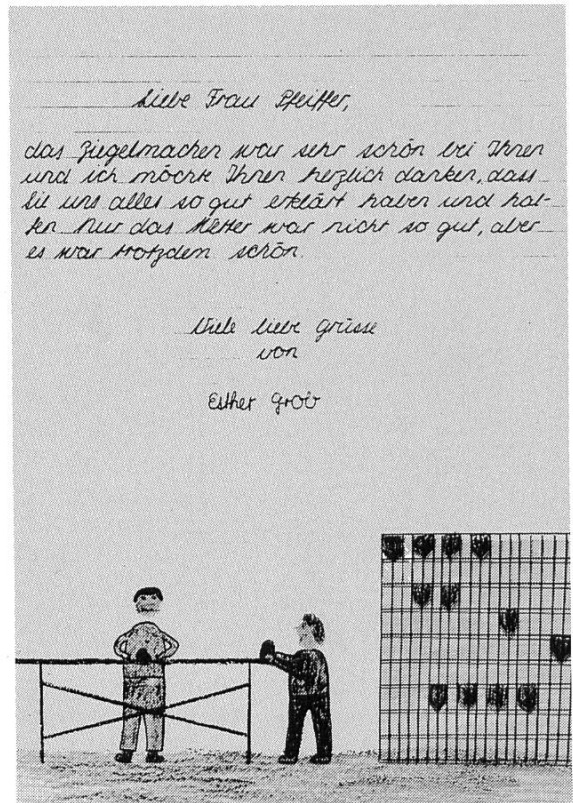 Liebe Frau Pfeiffer,
das Ziegelmachen war sehr schön bei Ihnen
und ich möchte Ihnen herzlich danken, dass
Sie uns alles so gut erklärt haben und hal-
fen. Nur das Wetter war nicht so gut, aber
es war trotzdem schön.
Viele liebe Grüsse
von
Esther Grob